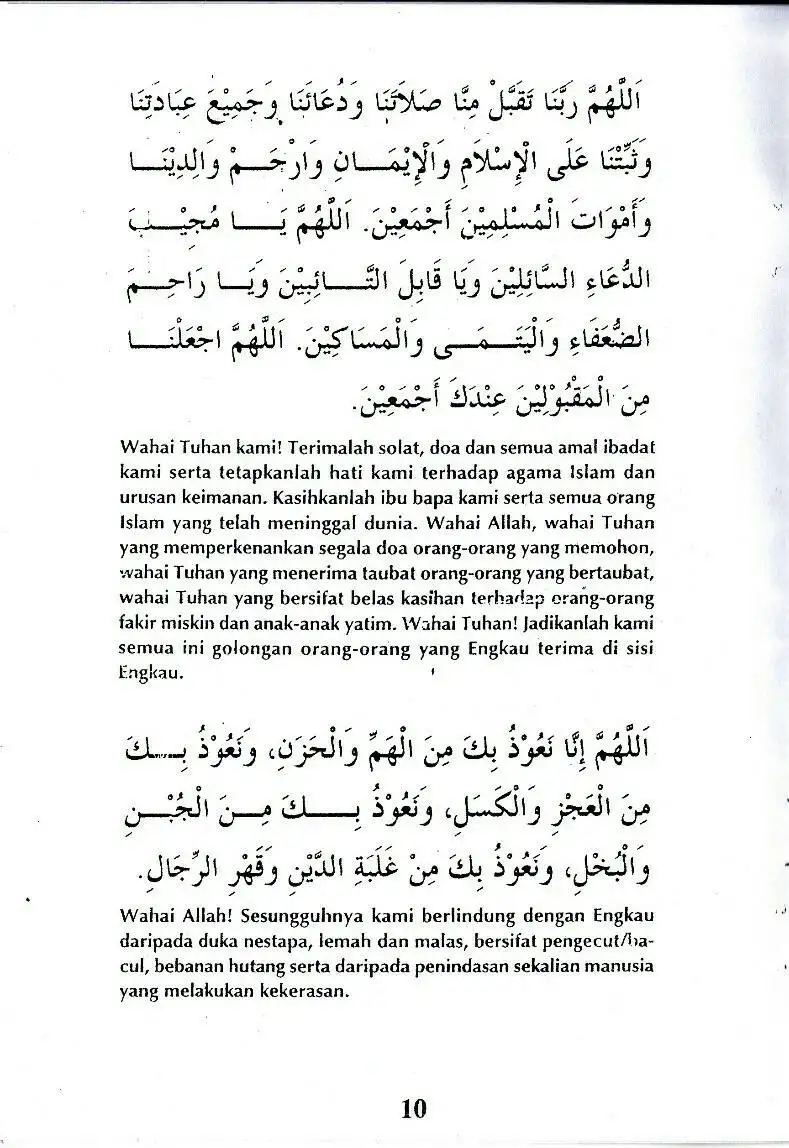 اَللَّهُمَّ رَبَّنَا تَقَبَّلْ مِنَّا صَلَاتَنَا وَدُعَائَنَا وَجَمِيْعَ عِبَادَتِنَا
وَثَبِّتْنَا عَلَى الْإِسْلَامِ وَالْإِيْمَــانِ وَارْحَــمْ وَالِدِيْنَــا
وَأَمْوَاتَ الْمُسْلِمِيْنَ أَجْمَعِيْنَ. اَللَّهُمَّ يَــا مُجِيْــبَ
الدُّعَاءِ السَّائِلِيْنَ وَيَا قَابِلَ التَّــائِبِيْنَ وَيَــا رَاحِــمَ
الضُّعَفَاءِ وَالْيَتَــمَــى وَالْمَسَاكِيْنَ. اَللَّهُمَّ اجْعَلْنَــا
مِنَ الْمَقْبُوْلِيْنَ عِنْدَكَ أَجْمَعِيْنَ.
Wahai Tuhan kami! Terimalah solat, doa dan semua amal ibadat
kami serta tetapkanlah hati kami terhadap agama Islam dan
urusan keimanan. Kasihkanlah ibu bapa kami serta semua orang
Islam yang telah meninggal dunia. Wahai Allah, wahai Tuhan
yang memperkenankan segala doa orang-orang yang memohon,
wahai Tuhan yang menerima taubat orang-orang yang bertaubat,
wahai Tuhan yang bersifat belas kasihan terhadap orang-orang
fakir miskin dan anak-anak yatim. Wahai Tuhan! Jadikanlah kami
semua ini golongan orang-orang yang Engkau terima di sisi
Engkau.
اَللَّهُمَّ إِنَّا نَعُوْذُ بِكَ مِنَ الْهَمِّ وَالْحَزَنِ، وَنَعُوْذُ بِــكَ
مِنَ الْعَجْزِ وَالْكَسَلِ، وَنَعُوْذُ بِــكَ مِــنَ الْجُبْــنِ
وَالْبُخْلِ، وَنَعُوْذُ بِكَ مِنْ غَلَبَةِ الدَّيْنِ وَقَهْرِ الرِّجَالِ.
Wahai Allah! Sesungguhnya kami berlindung dengan Engkau
daripada duka nestapa, lemah dan malas, bersifat pengecut/ba-
cul, bebanan hutang serta daripada penindasan sekalian manusia
yang melakukan kekerasan.
10